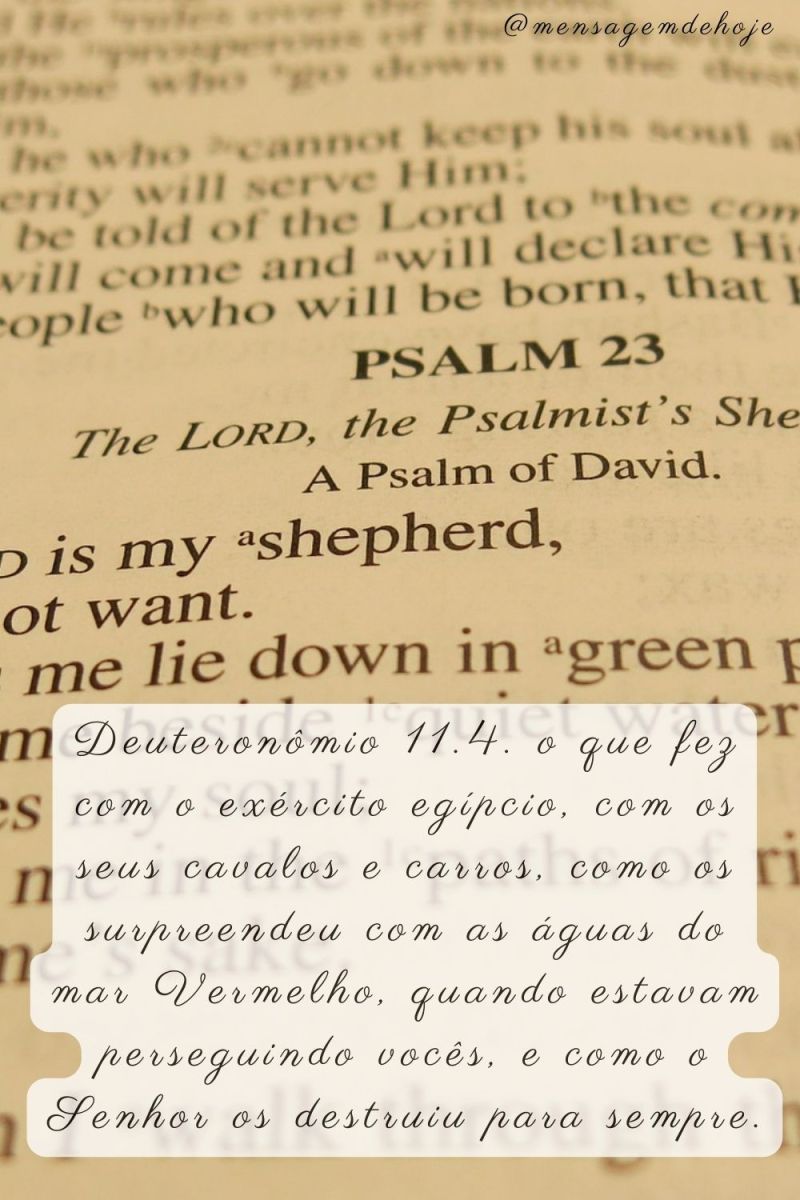 @mensagemdehoje
the prosperous of the
those who go down to the dust
m.
he who cannot keep his soul
erity will serve Him;
be told of the Lord to ᵇthe com
will come and ᵃwill declare Hi
eople ᵇwho will be born, that
PSALM 23
The LORD, the Psalmist's She
A Psalm of David.
D is my ᵃshepherd,
ot want.
me lie down in ᵃgreen p
me beside quiet water
es my soul;
me in the paths of ri
me's sake.
walk through th
Deuteronômio 11.4. o que fez
com o exército egípcio, com os
seus cavalos e carros, como os
surpreendeu com as águas do
mar Vermelho, quando estavam
perseguindo vocês, e como o
Senhor os destruiu para sempre.